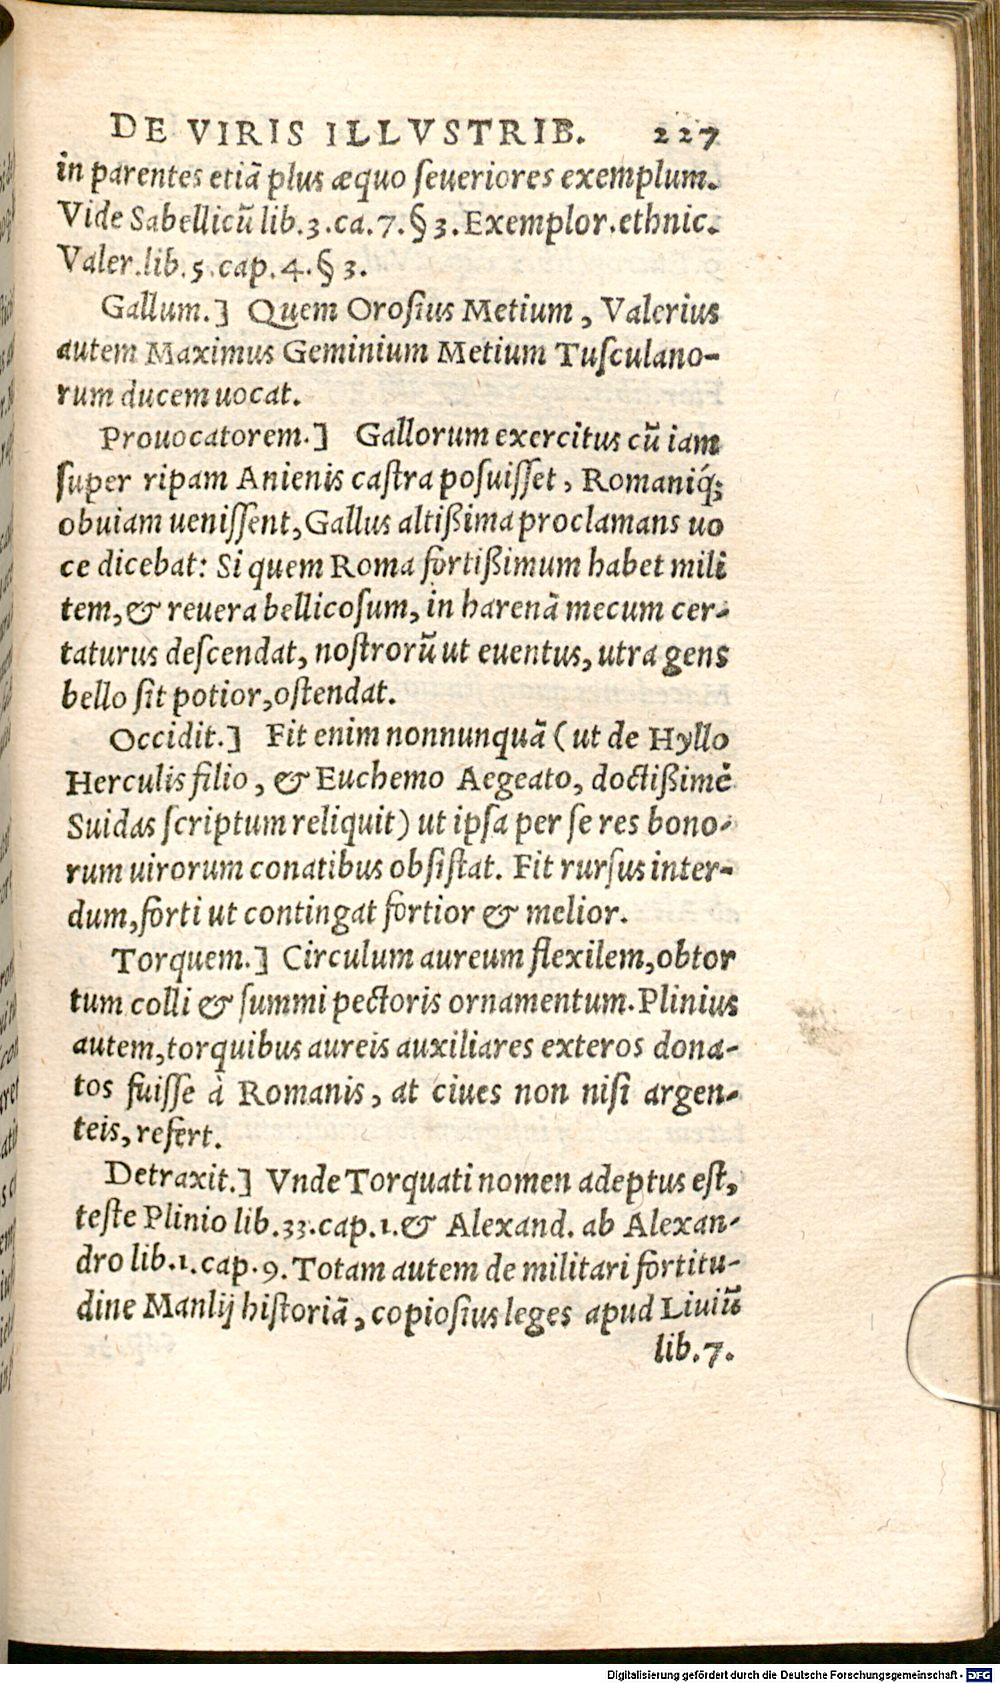 DE VIRIS ILLVSTRIB. 227
in parentes etiã plus æquo ſeueriores exemplum.
Vide Sabellicũ lib.3.ca.7.§ 3.Exemplor.ethnic.
Valer.lib.5.cap.4.§ 3.
Gallum.] Quem Oroſius Metium, Valerius
autem Maximus Geminium Metium Tuſculano-
rum ducem uocat.
Prouocatorem.] Gallorum exercitus cũ iam
ſuper ripam Anienis caſtra poſuiſſet, Romaniq́;
obuiam ueniſſent, Gallus altißima proclamans uo
ce dicebat: Si quem Roma fortißimum habet mili
tem,& reuera bellicoſum, in harenã mecum cer-
taturus deſcendat, noſtrorũ ut euentus, utra gens
bello ſit potior, oſtendat.
Occidit.] Fit enim nonnunquã (ut de Hyllo
Herculis filio, & Euchemo Aegeato, doctißimẽ
Suidas ſcriptum reliquit) ut ipſa per ſe res bono-
rum uirorum conatibus obſiſtat. Fit rurſus inter-
dum, forti ut contingat fortior & melior.
Torquem.] Circulum aureum flexilem, obtor
tum colli & ſummi pectoris ornamentum. Plinius
autem, torquibus aureis auxiliares exteros dona-
tos fuiſſe à Romanis, at ciues non niſi argen-
teis, refert.
Detraxit.] Vnde Torquati nomen adeptus eſt,
teſte Plinio lib.33.cap.1.& Alexand. ab Alexan-
dro lib.1.cap.9. Totam autem de militari fortitu-
dine Manlij hiſtoriã, copioſius leges apud Liuiũ
lib.7.
Digitalisierung gefördert durch die Deutsche Forschungsgemeinschaft - DFG